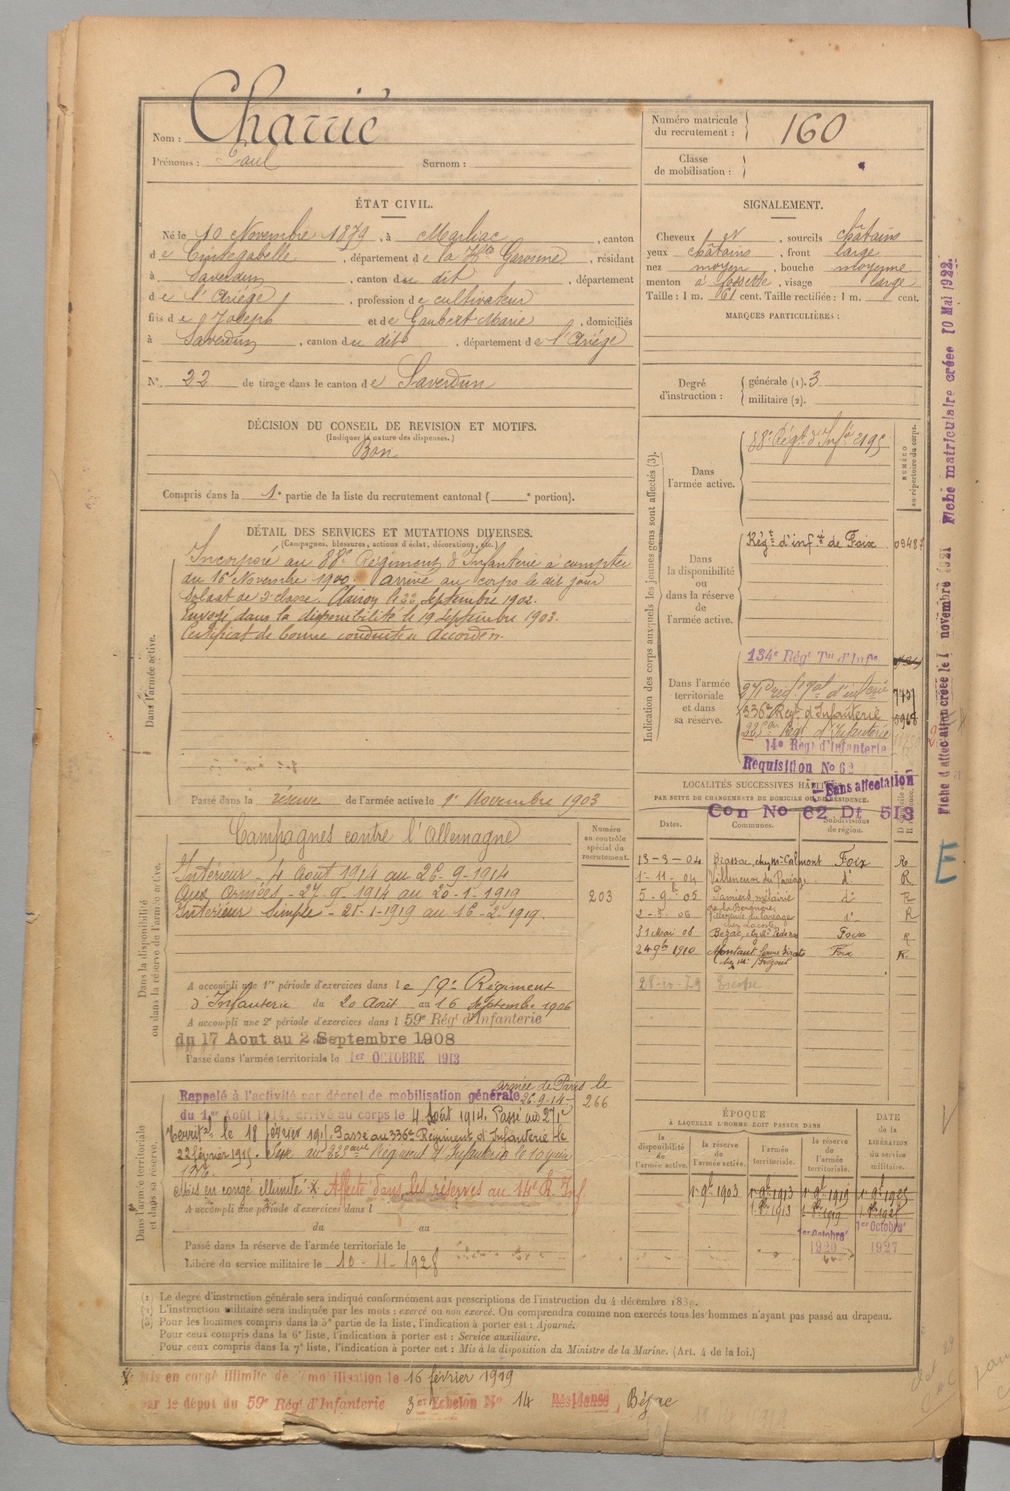 Nom : Charrié
Prénoms : Paul Surnom :
Numéro matricule du recrutement : 160
Classe de mobilisation :
ÉTAT CIVIL.
Né le 10 Novembre 1879, à Marliac, canton
de Cintegabelle, département de la Hte Garonne, résidant
à Saverdun, canton du dit, département
de l'Ariège, profession de cultivateur
fils de Joseph et de Gaubert Marie, domiciliés
à Saverdun, canton du dit, département de l'Ariège
N° 22 de tirage dans le canton de Saverdun
SIGNALEMENT.
Cheveux , sourcils châtains
yeux châtains, front large
nez moyen, bouche moyenne
menton à fossette, visage large
Taille : 1 m. 61 cent. Taille rectifiée : 1 m. cent.
MARQUES PARTICULIÈRES :
Degré d'instruction : générale (1). 3
militaire (2).
DÉCISION DU CONSEIL DE REVISION ET MOTIFS.
(Indiquer la nature des dispenses.)
Bon
Compris dans la 1e partie de la liste du recrutement cantonal ( e portion).
DÉTAIL DES SERVICES ET MUTATIONS DIVERSES.
(Campagnes, blessures, actions d'éclat, décorations, etc.)
Dans l'armée active.
Incorporé au 88e Régiment d'Infanterie à compter
du 16 Novembre 1900. arrivé au corps le dit jour
soldat de 2e classe. Clairon le 22 Septembre 1902.
Envoyé dans la disponibilité le 19 Septembre 1903.
Certificat de bonne conduite accordé
Passé dans la réserve de l'armée active le 1er Novembre 1903
Indication des corps auxquels les jeunes gens sont affectés (3).
NUMÉRO au répertoire du corps.
Dans l'armée active.
88e Régt d'Infie 2195
Dans la disponibilité ou dans la réserve de l'armée active.
Régt d'infie de Foix 03487
Dans l'armée territoriale et dans sa réserve.
134e Régt Tal d'Infie
271e régt Tal d'infie 7451
336e Régt d'Infanterie 6968
Régt d'Infanterie
14e Regt d'Infanterie
Requisition No 62
Sans affectation
Con No 62 Dt 513
Dans la disponibilité ou dans la réserve de l'armée active.
Numéro au contrôle spécial du recrutement.
Campagnes contre l'Allemagne
Intérieur - 4 août 1914 au 26-9-1914
Aux Armées - 27-9-1914 au 20-1-1919
Intérieur simple - 21-1-1919 au 16-2-1919
203
A accompli une 1re période d'exercices dans le 59e Régiment
d'Infanterie du 20 Août au 16 Septembre 1906
A accompli une 2e période d'exercices dans l 59e Régt d'Infanterie
du 17 Aout au 2 Septembre 1908
Passé dans l'armée territoriale le 1er OCTOBRE 1913
LOCALITÉS SUCCESSIVES HABITÉES
PAR SUITE DE CHANGEMENTS DE DOMICILE OU DE RÉSIDENCE.
Dates. Communes. Subdivisions de région.
13-3-04 Brassac, chez Mr Calmont Foix R
1-11-04 Villeneuve du Paréage d° R
5-9bre 05 Pamiers métairie d° R
2-5-06 Villeneuve du Paréage d° R
31 Mai 08 Bézac, Foix R
24 9b 1910 Montaut Foix R
28-10-29
Dans l'armée territoriale et dans sa réserve.
armée de Paris le
Rappelé à l'activité par décret de mobilisation générale 26-9-14-
266
du 1er Août 1914, arrivé au corps le 4 Août 1914. Passé au 271e
Territal le 18 février 1915. Passé au 336e Régiment d'Infanterie le
22 février 1915. Régiment d'Infanterie le 10 juin
Mis en congé illimité X Affecté dans les réserves au 14e R. Inf
A accompli une période d'exercices dans l
du au
Passé dans la réserve de l'armée territoriale le
Libéré du service militaire le 10-11-1928
ÉPOQUE
À LAQUELLE L'HOMME DOIT PASSER DANS
DATE de la LIBÉRATION du service militaire.
la disponibilité de l'armée active. la réserve de l'armée active. l'armée territoriale. la réserve de l'armée territoriale.
1er 9bre 1903 1er 9bre 1913 1er 9bre 1919 1er 9bre 1925
1er 8bre 1913
1er Octobre 1920 1er Octobre 1927
(1) Le degré d'instruction générale sera indiqué conformément aux prescriptions de l'instruction du 4 décembre 1889.
(2) L'instruction militaire sera indiquée par les mots : exercé ou non exercé. On comprendra comme non exercés tous les hommes n'ayant pas passé au drapeau.
(3) Pour les hommes compris dans la 5e partie de la liste, l'indication à porter est : Ajourné.
Pour ceux compris dans la 6e liste, l'indication à porter est : Service auxiliaire.
Pour ceux compris dans la 7e liste, l'indication à porter est : Mis à la disposition du Ministre de la Marine. (Art. 4 de la loi.)
X Mis en congé illimité de démobilisation le 16 février 1919
par le dépôt du 59e Régt d'Infanterie 3er Echelon No 14 Résidence, Bézac
Fiche d'affectation créée le 1 novembre 1921 Fiche matriculaire créée 10 Mai 1922.
E